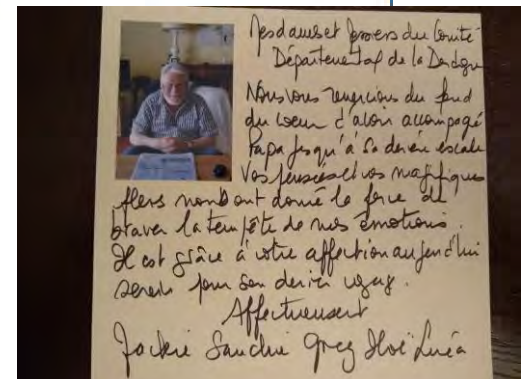 Mesdames et Messieurs du Comité
Départemental de la Dordogne
Nous vous remercions du fond
du coeur d'avoir accompagné
Papa jusqu'à sa dernière escale
Vos pensées et vos magnifiques
fleurs nous ont donné la force de
braver la tempête de nos émotions.
Il est grâce à votre affection aujourd'hui
serein pour son dernier voyage.
Affectueusement
Jackie Greg